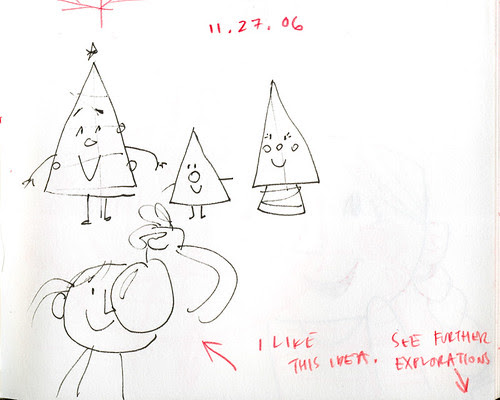 11.27.06
I LIKE
THIS IDEA.
SEE FURTHER
EXPLORATIONS